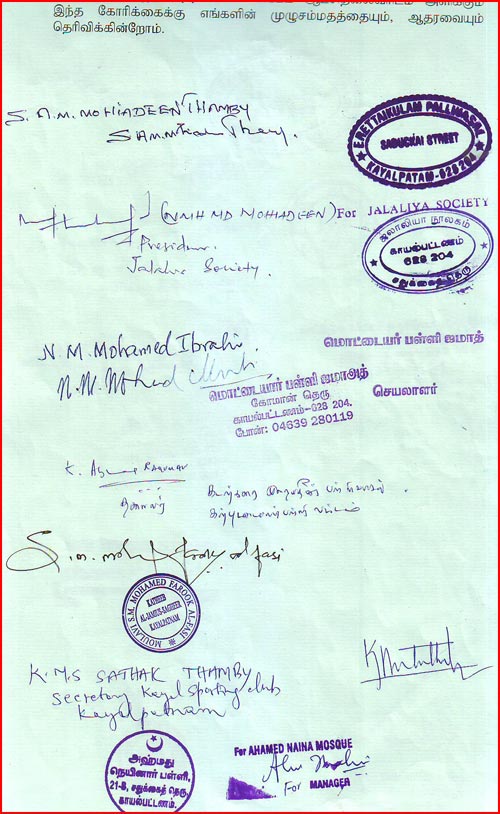 இந்த கோரிக்கைக்கு எங்களின் முழுசம்மதத்தையும், ஆதரவையும்
தெரிவிக்கின்றோம்.
S. A.M. MOHIADEEN THAMBY
ERETTAIKULAM PALLIVASAL
SADUCKAI STREET
KAYALPATAM-628 204
(N.M.H MD MOHIADEEN)
President
Jalalia Society.
For JALALIYA SOCIETY
ஜலாலியா நூலகம்
காயல்பட்டணம்
628 204
சதுக்கைத் தெரு
N. M. Mohamed Ibrahi
N. M. Mohamed
மொட்டையர் பள்ளி ஜமாஅத்
செயலாளர்
மொட்டையார் பள்ளி ஜமாஅத்
கோமான் தெரு
காயல்பட்டணம்-628 204.
போன்: 04639 280119
K.
தலைவர்
S. M. moh al fasi
MOULAVI S.M. MOHAMED FAROOK AL-FASI
KATHEEB
AL-JAMIUS-SAGHEER
KAYALPATNAM
K. M. S SATHAK THAMBY
Secretary Kayal Sporting club
Kayalpatnam
அஹ்மது
நெயினார் பள்ளி,
21-B, சதுக்கைத் தெரு,
காயல்பட்டணம்.
For AHAMED NAINA MOSQUE
For MANAGER